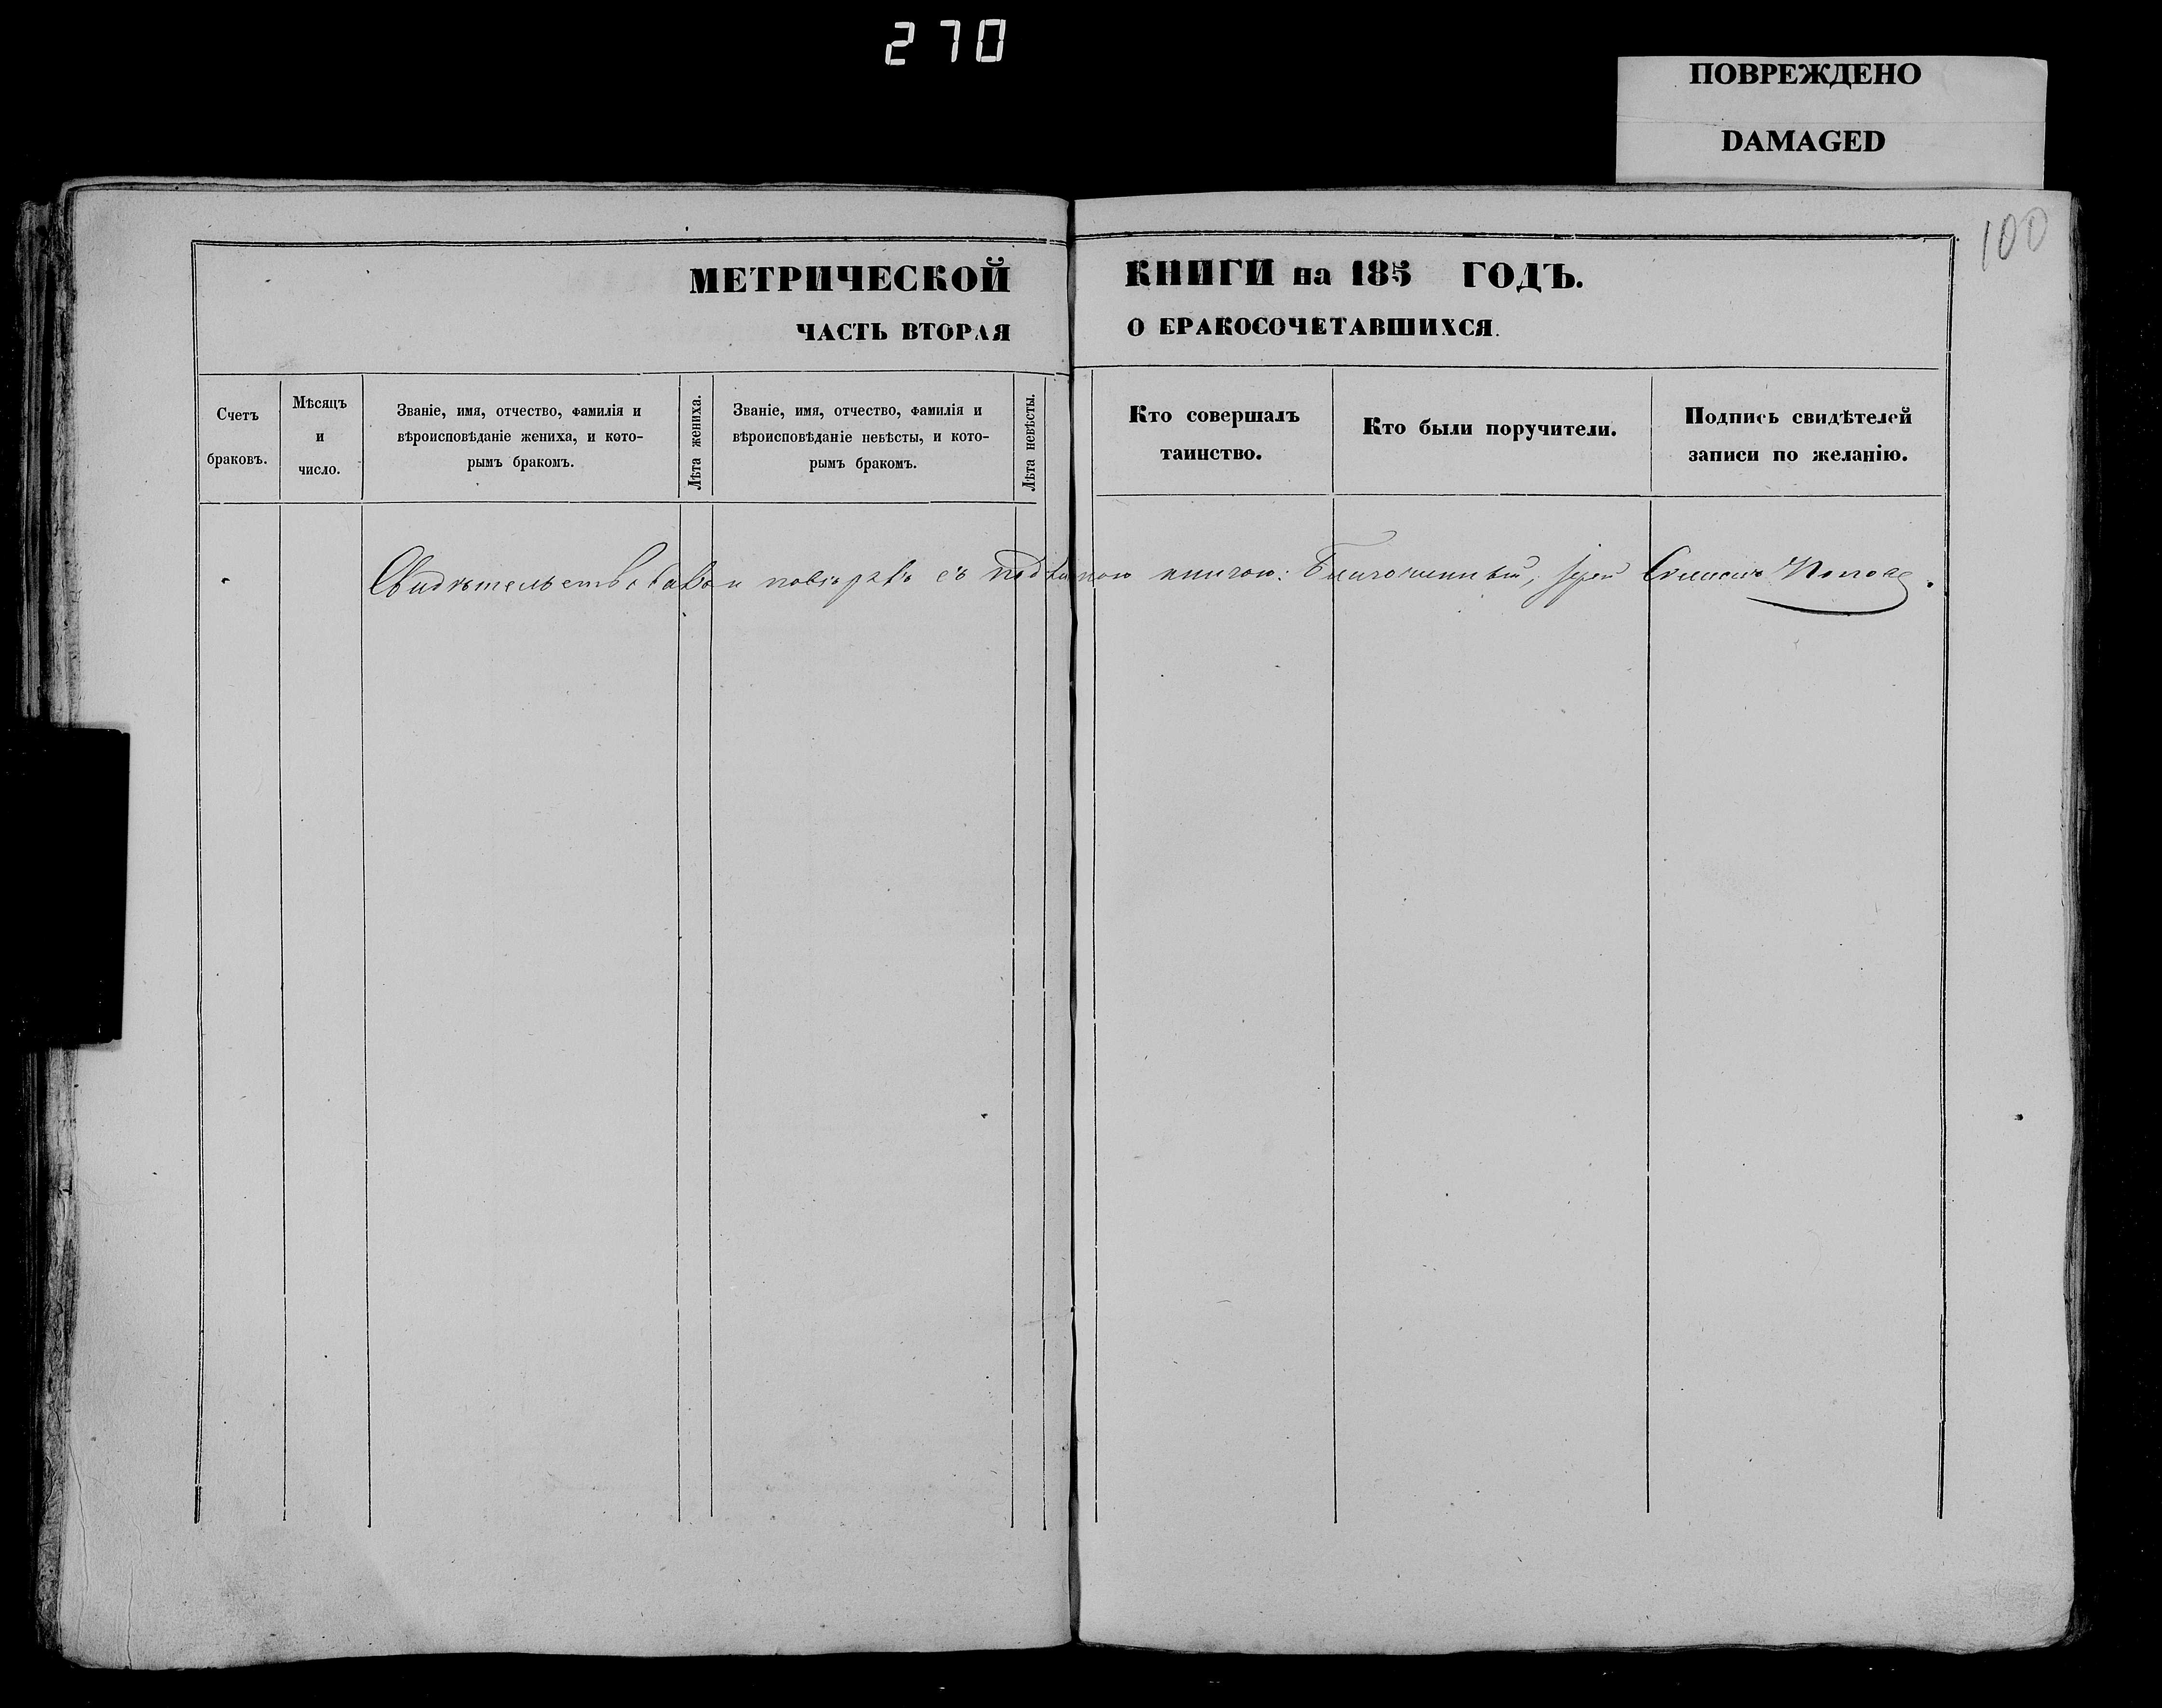 270
ПОВРЕЖДЕНО
DAMAGED
100
МЕТРИЧЕСКОЙ КНИГИ на 185 ГОДЪ.
ЧАСТЬ ВТОРАЯ О БРАКОСОЧЕТАВШИХСЯ.
Счетъ
браковъ.
Мѣсяцъ
и
число.
Званіе, имя, отчество, фамилія и
вѣроисповѣданіе жениха, и кото-
рымъ бракомъ.
Лѣта жениха.
Званіе, имя, отчество, фамилія и
вѣроисповѣданіе невѣсты, и кото-
рымъ бракомъ.
Лѣта невѣсты.
Кто совершалъ
таинство.
Кто были поручители.
Подпись свидѣтелей
записи по желанію.
Свидѣтельствовалъ и повѣрялъ съ подлинною книгою: Благочинный, Іерей Поповъ.